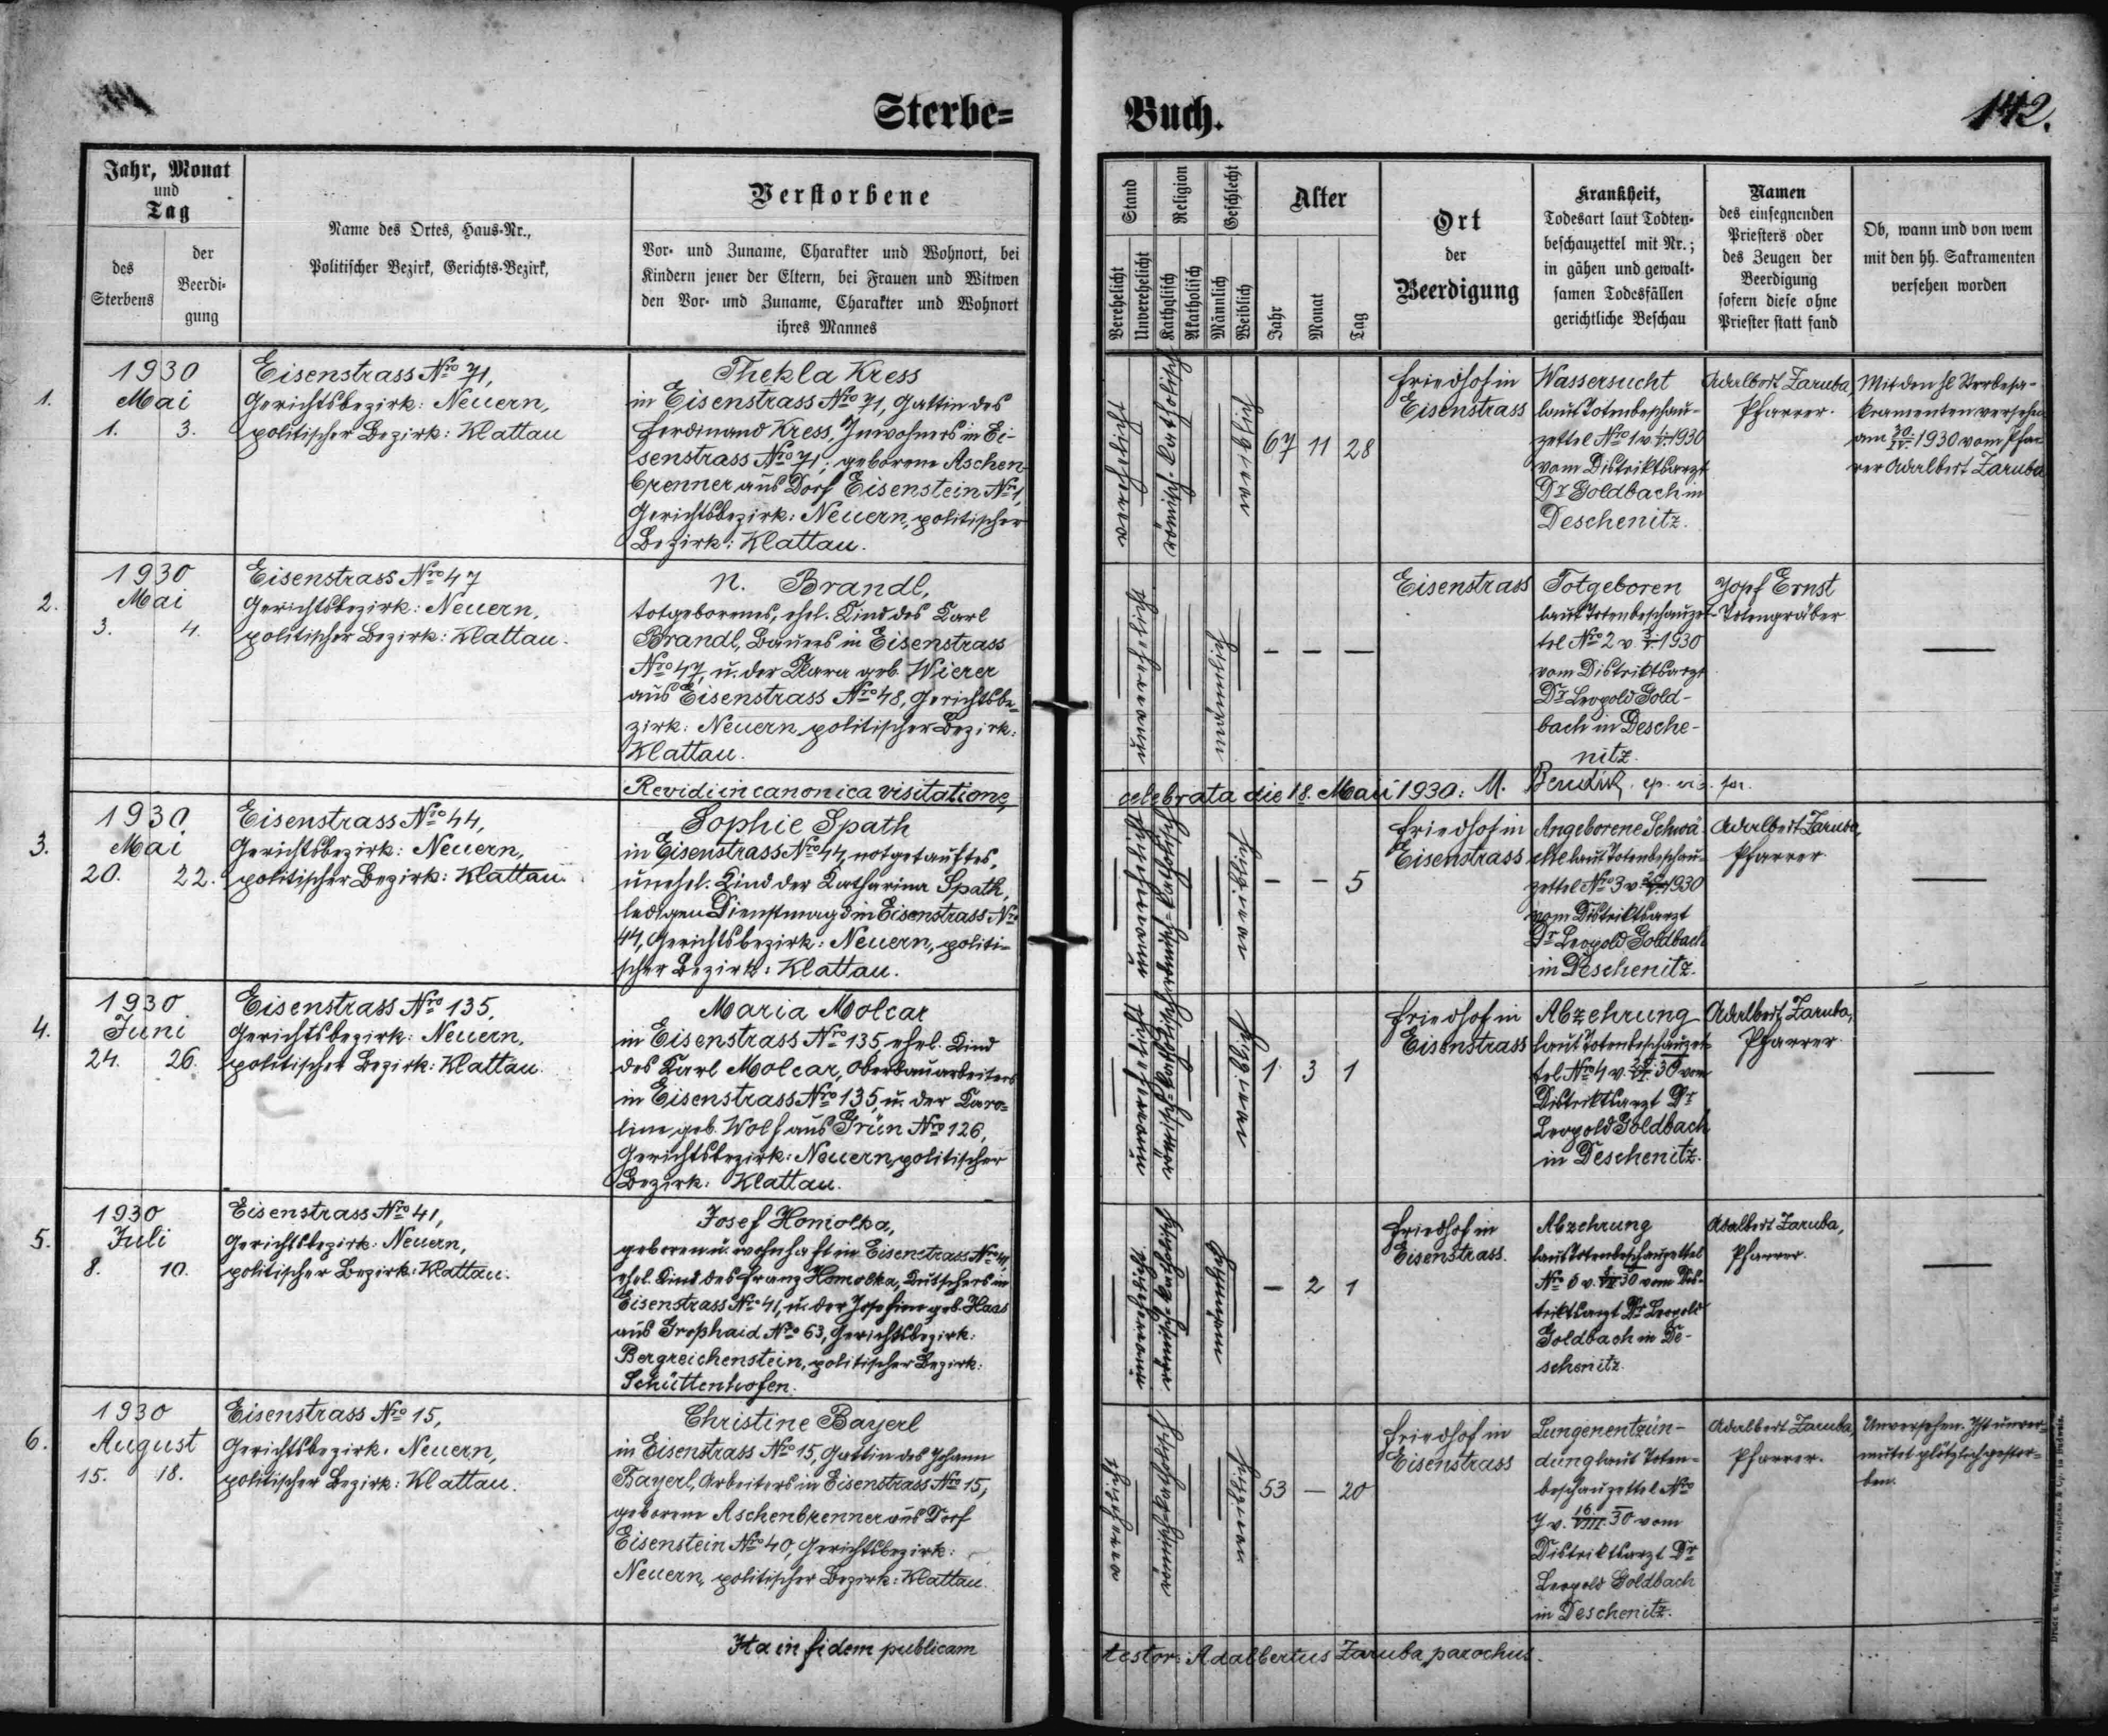 Sterbe=
Buch.
142.
Jahr, Monat
und
Tag
des
Sterbens
der
Beerdi-
gung
Name des Ortes, Haus-Nr.,
Politischer Bezirk, Gerichts-Bezirk,
Verstorbene
Vor- und Zuname, Charakter und Wohnort, bei
Kindern jener der Eltern, bei Frauen und Witwen
den Vor- und Zuname, Charakter und Wohnort
ihres Mannes
Stand
Verehelicht
Unverehelicht
Religion
Katholisch
Akatholisch
Geschlecht
Männlich
Weiblich
Alter
Jahr
Monat
Tag
Ort
der
Beerdigung
Krankheit,
Todesart laut Todten-
beschauzettel mit Nr.;
in gähen und gewalt-
samen Todesfällen
gerichtliche Beschau
Namen
des einsegnenden
Priesters oder
des Zeugen der
Beerdigung
sofern diese ohne
Priester statt fand
Ob, wann und von wem
mit den hh. Sakramenten
versehen worden
1.
1930
Mai
1. 3.
Eisenstrass Nro 71,
Gerichtsbezirk: Neuern,
politischer Bezirk: Klattau
Thekla Kress
in Eisenstrass Nro 71, Gattin des
Ferdinand Kress, Inwohners in Ei-
senstrass Nro 71, geborene Aschen-
brenner aus Dorf Eisenstein Nro 1,
Gerichtsbezirk: Neuern, politischer
Bezirk: Klattau.
verehelicht
römisch-katholisch
weiblich
67 11 28
Friedhof in
Eisenstrass
Wassersucht
laut Totenbeschau-
zettel Nro 1 v. 1/V. 1930
vom Distriktsarzt
Dr Goldbach in
Deschenitz.
Adalbert Zaruba,
Pfarrer.
Mit den hl Sterbesa-
kramenten versehen
am 30/IV. 1930 vom Pfar-
rer Adalbert Zaruba
2.
1930
Mai
3. 4.
Eisenstrass Nro 47
Gerichtsbezirk: Neuern,
politischer Bezirk: Klattau.
N. Brandl,
totgeborenes, ehel. Kind des Karl
Brandl, Bauers in Eisenstrass
Nro 47, u. der Klara geb. Wierer
aus Eisenstrass Nro 48, Gerichtsbe-
zirk: Neuern, politischer Bezirk:
Klattau.
unverehelicht
männlich
— — —
Eisenstrass
Totgeboren
laut Totenbeschauzet-
tel Nro 2 v. 3/V. 1930
vom Distriktsarzt
Dr Leopold Gold-
bach in Desche-
nitz.
Zopf Ernst
Totengräber
—
Revidi in canonica visitatione
celebrata die 18. Maii 1930: M.
3.
1930
Mai
20. 22.
Eisenstrass Nro 44,
Gerichtsbezirk: Neuern,
politischer Bezirk: Klattau.
Sophie Spath
in Eisenstrass Nro 44, notgetauftes,
unehel. Kind der Katharina Spath,
ledigen Dienstmagd in Eisenstrass Nro
44, Gerichtsbezirk: Neuern, politi-
scher Bezirk: Klattau.
unverehelicht
römisch-katholisch
weiblich
— — 5
Friedhof in
Eisenstrass
Angeborene Schwä-
che laut Totenbeschau-
zettel Nro 3 v. 20/V. 1930
vom Distriktsarzt
Dr Leopold Goldbach
in Deschenitz.
Adalbert Zaruba,
Pfarrer.
—
4.
1930
Juni
24. 26.
Eisenstrass Nro 135.
Gerichtsbezirk: Neuern,
politischer Bezirk: Klattau.
Maria Molcar
in Eisenstrass Nro 135 ehel. Kind
des Karl Molcar, Oberbauarbeiters
in Eisenstrass Nro 135, u. der Karo-
line geb. Wolf aus Grün Nro 126,
Gerichtsbezirk: Neuern, politischer
Bezirk: Klattau.
unverehelicht
römisch-katholisch
weiblich
1 3 1
Friedhof in
Eisenstrass
Abzehrung
laut Totenbeschauzet-
tel Nro 4 v. 30 vom
Distriktsarzt Dr
Leopold Goldbach
in Deschenitz.
Adalbert Zaruba,
Pfarrer.
—
5.
1930
Juli
8. 10.
Eisenstrass Nro 41,
Gerichtsbezirk: Neuern,
politischer Bezirk: Klattau.
Josef Homolka,
geboren u. wohnhaft in Eisenstrass Nro 41,
ehel. Kind des Franz Homolka, Kutschers in
Eisenstrass Nro 41, u. der Josefine geb. Haas
aus Grosshaid Nro 63, Gerichtsbezirk:
Bergreichenstein, politischer Bezirk:
Schüttenhofen.
unverehelicht
römisch-katholisch
männlich
— 2 1
Friedhof in
Eisenstrass.
Abzehrung
laut Totenbeschauzettel
Nro v. 30 vom Dis-
triktsarzt Dr Leopold
Goldbach in De-
schenitz.
Adalbert Zaruba,
Pfarrer.
—
6.
1930
August
15. 18.
Eisenstrass Nro 15,
Gerichtsbezirk: Neuern,
politischer Bezirk: Klattau.
Christine Bayerl
in Eisenstrass Nro 15, Gattin des Johann
Bayerl, Arbeiters in Eisenstrass Nro 15,
geborene Aschenbrenner aus Dorf
Eisenstein Nro 40, Gerichtsbezirk:
Neuern, politischer Bezirk: Klattau.
verehelicht
römisch-katholisch
weiblich
53 — 20
Friedhof in
Eisenstrass
Lungenentzün-
dung laut Toten-
beschauzettel Nro
7 v. 16/VIII. 30 vom
Distriktsarzt Dr
Leopold Goldbach
in Deschenitz.
Adalbert Zaruba,
Pfarrer.
Unversehen. Ist unver-
mutet plötzlich gestor-
ben.
Ita in fidem publicam
testor: Adalbertus Zaruba, parochus.